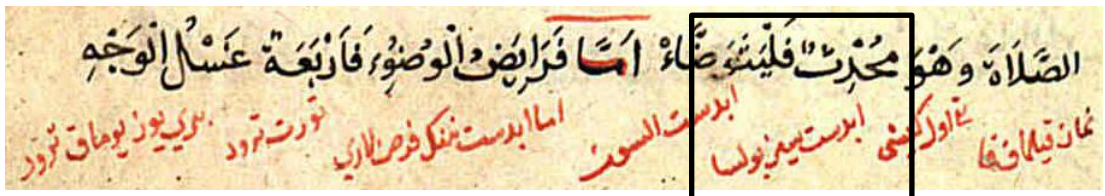 الصَّلَاةَ وَهُوَ مُحْدِثٌ فَلْيَتَوَضَّاءْ اَمَّا فَرَايِضُ الْوُضُوءِ فَاَرْبَعَةٌ غَسْلُ الْوَجْهِ
نماز قيلماققا تقى اول كيشى ابدست سيز بولسا ابدست السون اما ابدست فرض لارى تورت ترور بيرى يوز يوماق ترور